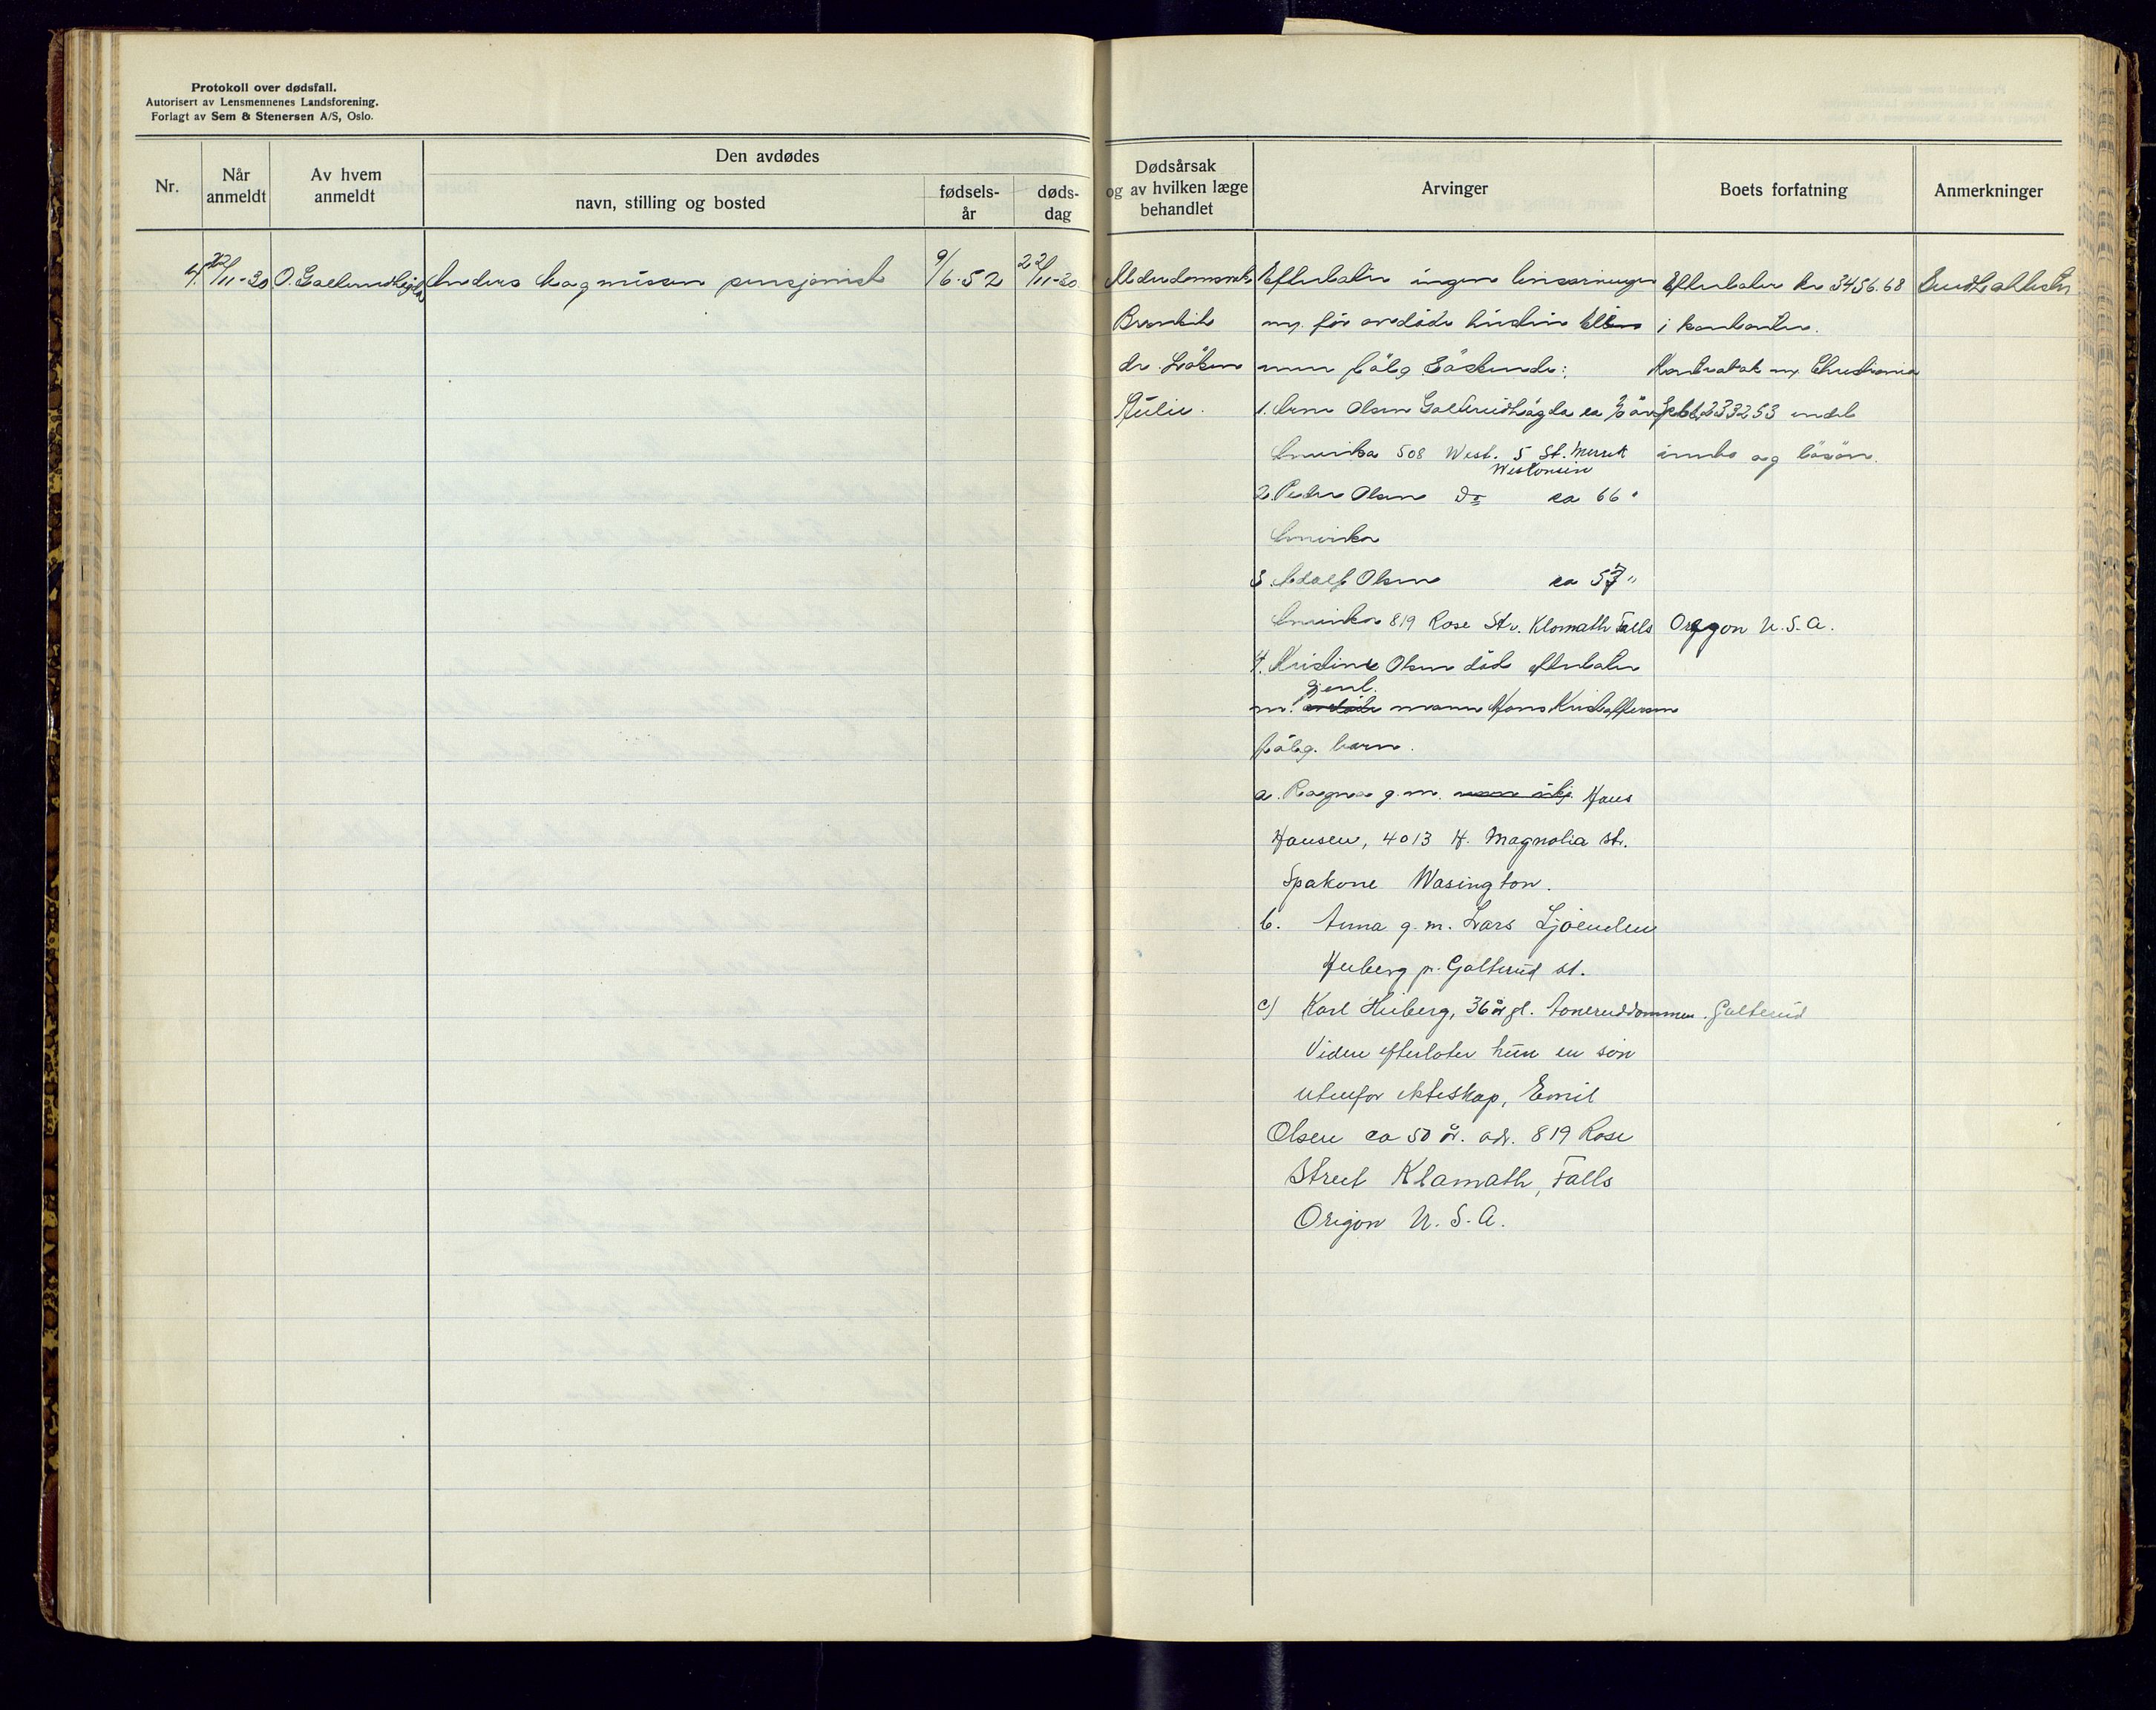 Protokoll over dødsfall.
Autorisert av Lensmennenes Landsforening.
Forlagt av Sem & Stenersen A/S, Oslo.
Nr.
Når anmeldt
Av hvem anmeldt
Den avdødes
navn, stilling og bosted
fødsels-år
døds-dag
4. 22/11-30 O. Galterud Anders Magnussen pensjonist 9/6-52 22/11-30
Dødsårsak og av hvilken læge behandlet
Arvinger
Boets forfatning
Anmerkninger
Alderdomssvak
dr. Løken
Efterlater ingen livsarvinger
m. før avdøde hustru
men følg. Søskende:
1. Olsen Galterud ca
Amerika 508 West. 5 St.
2. Peder Olsen Do ca 66 "
Amerika
3. Adolf Olsen ca 57 "
Amerika 819 Rose Str. Klomath Falls Oregon U.S.A.
4. Kristine Olsen død efterlater
gjenl.
m. mann Hans Kristoffersen
følg. barn.
a. Ragna g.m. Hans
Hansen, 4013 H. Magnolia str.
Spakone Wasington.
b. Anna g.m. Lars Ljøenden
Heiberg p. Galterud st.
c) Karl Heiberg, 36 år gl. Toneruddammen. Galterud
Videre efterlater hun en søn
utenfor ekteskap, Emil
Olsen ca 50 år. adr. 819 Rose
Street Klamath, Falls
Origon U.S.A.
Efterlater kr 3456.68
i kontanter.
Kontrabok m. Christiania
233253 andel
innbo og løsøre.